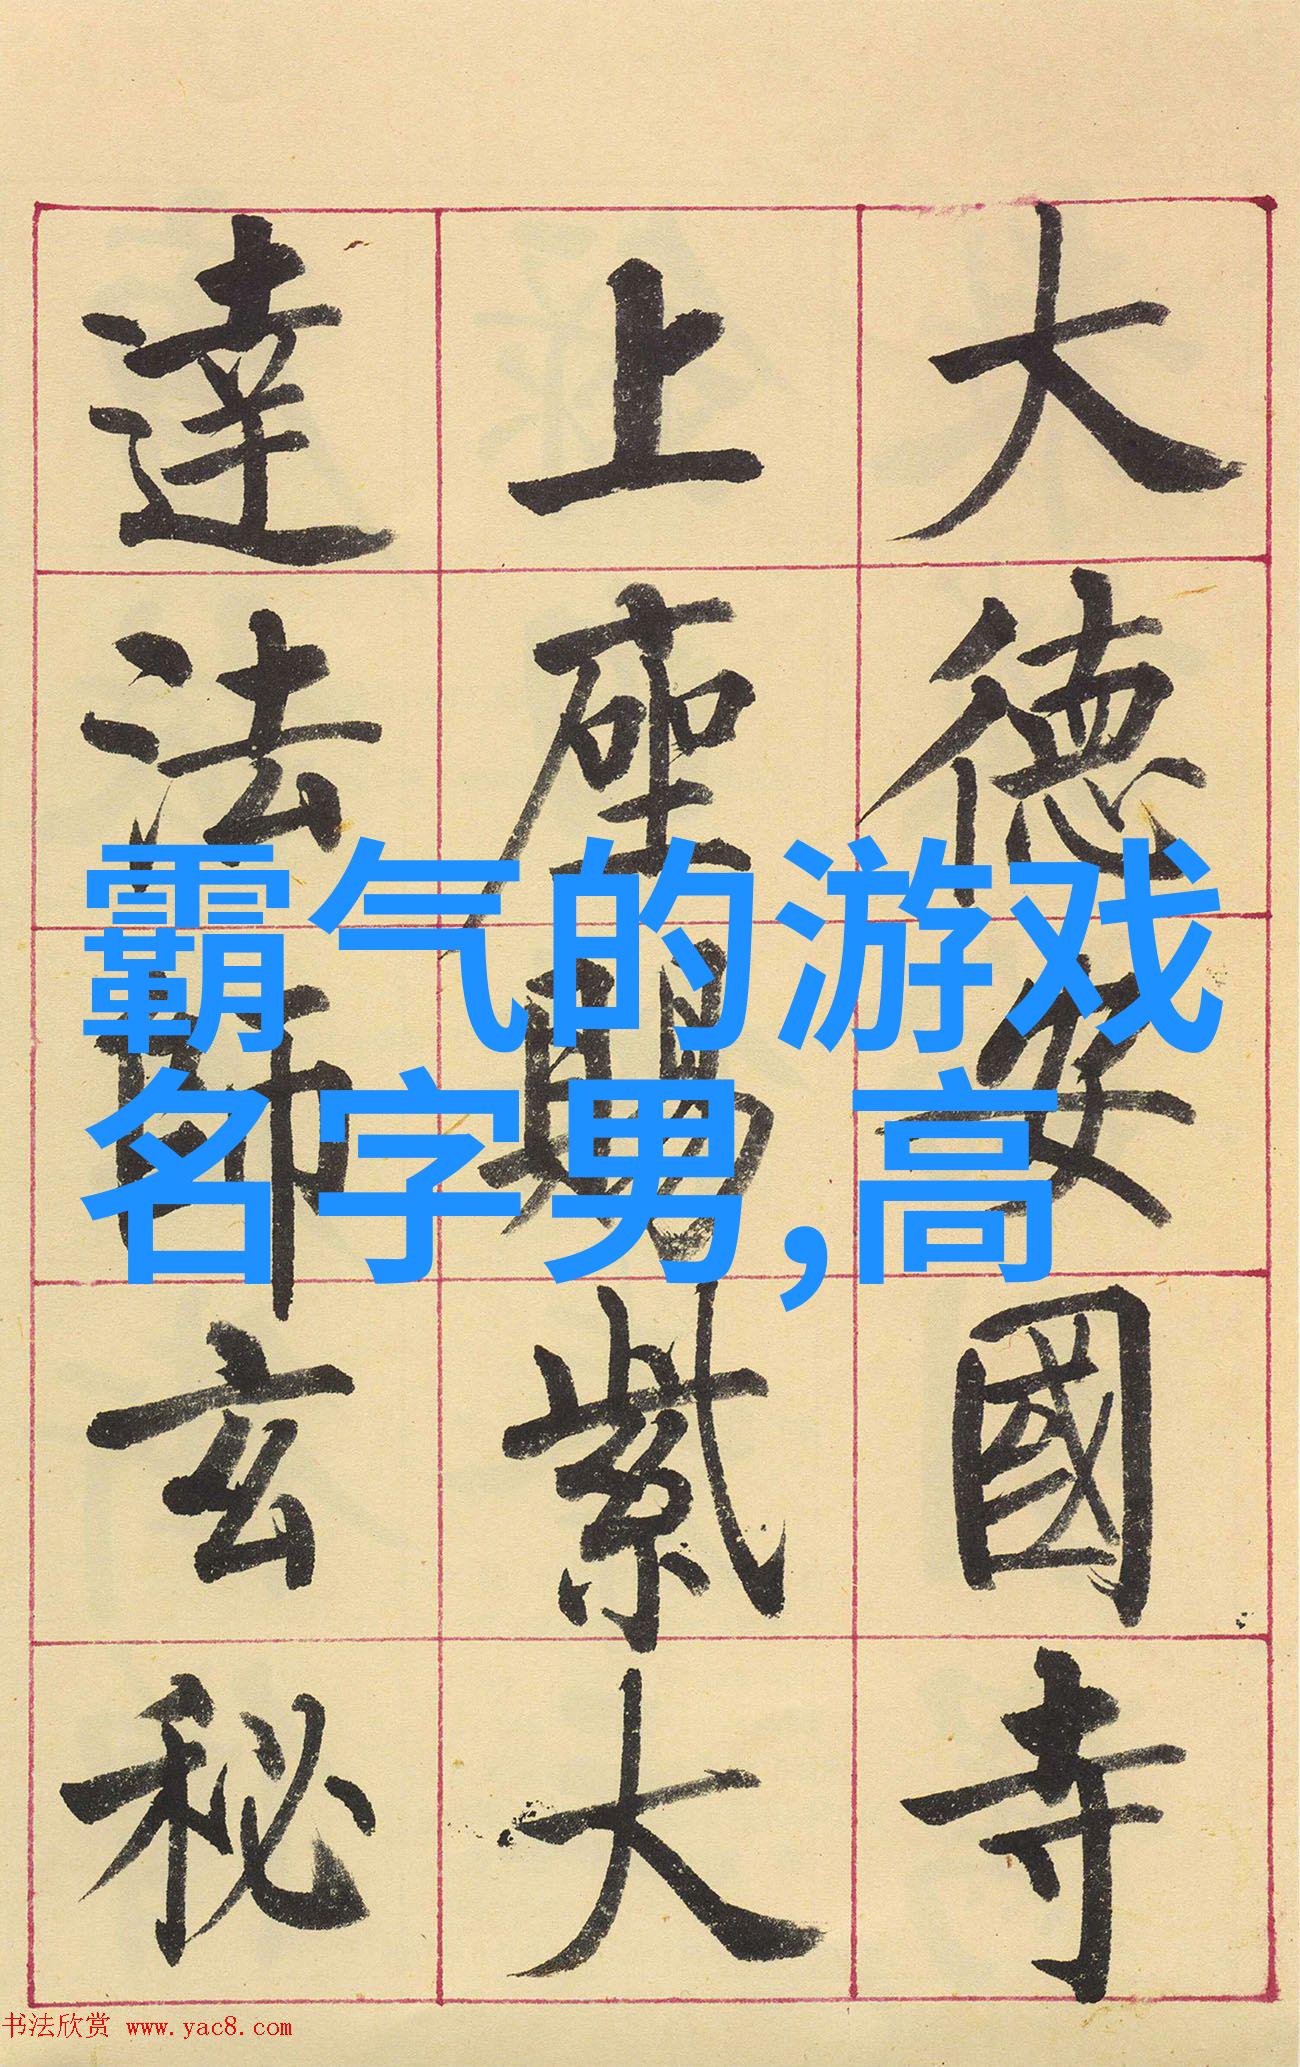 大德安國寺
上座賜紫大
達法師玄秘
霸气的游戏
名字男,高
书法欣赏 www.yac8.com